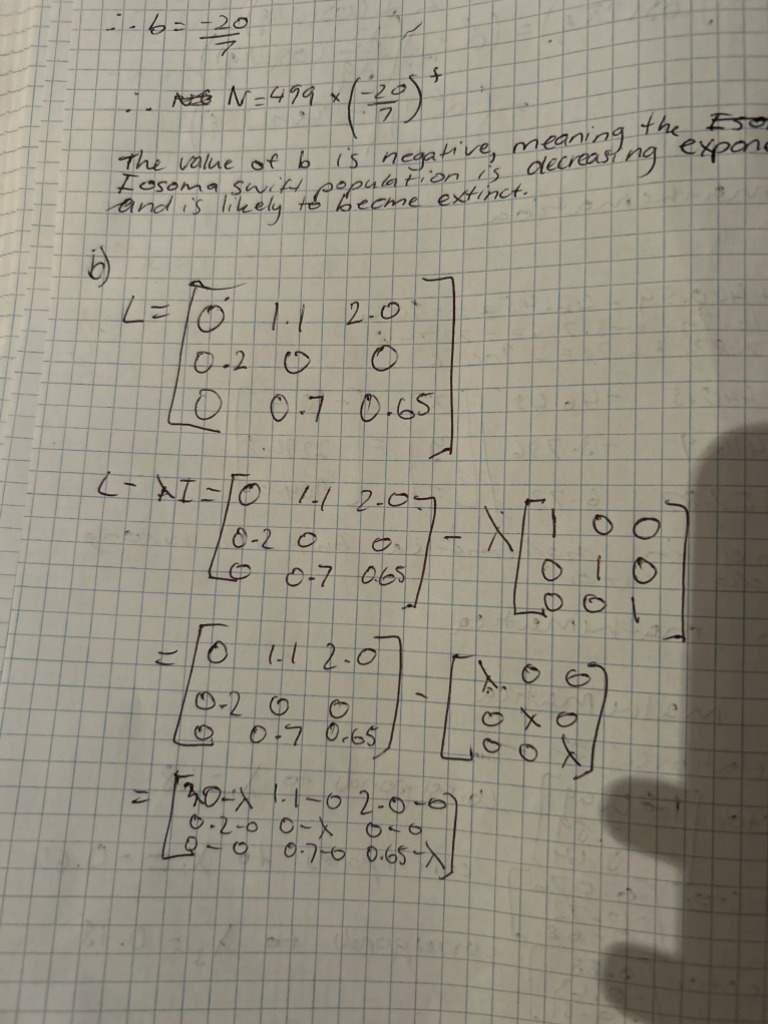 ∴ b = -20/7
∴ N = 499 × (-20/7)^t
The value of b is negative, meaning the
Iosoma swift population is decreasing
and is likely to become extinct.
b)
L = [0 1.1 2.0
0.2 0 0
0 0.7 0.65]
L - λI = [0 1.1 2.0
0.2 0 0
0 0.7 0.65] - λ[1 0 0
0 1 0
0 0 1]
= [0 1.1 2.0
0.2 0 0
0 0.7 0.65] - [λ 0 0
0 λ 0
0 0 λ]
= [0-λ 1.1-0 2.0-0
0.2-0 0-λ 0-0
0-0 0.7-0 0.65-λ]